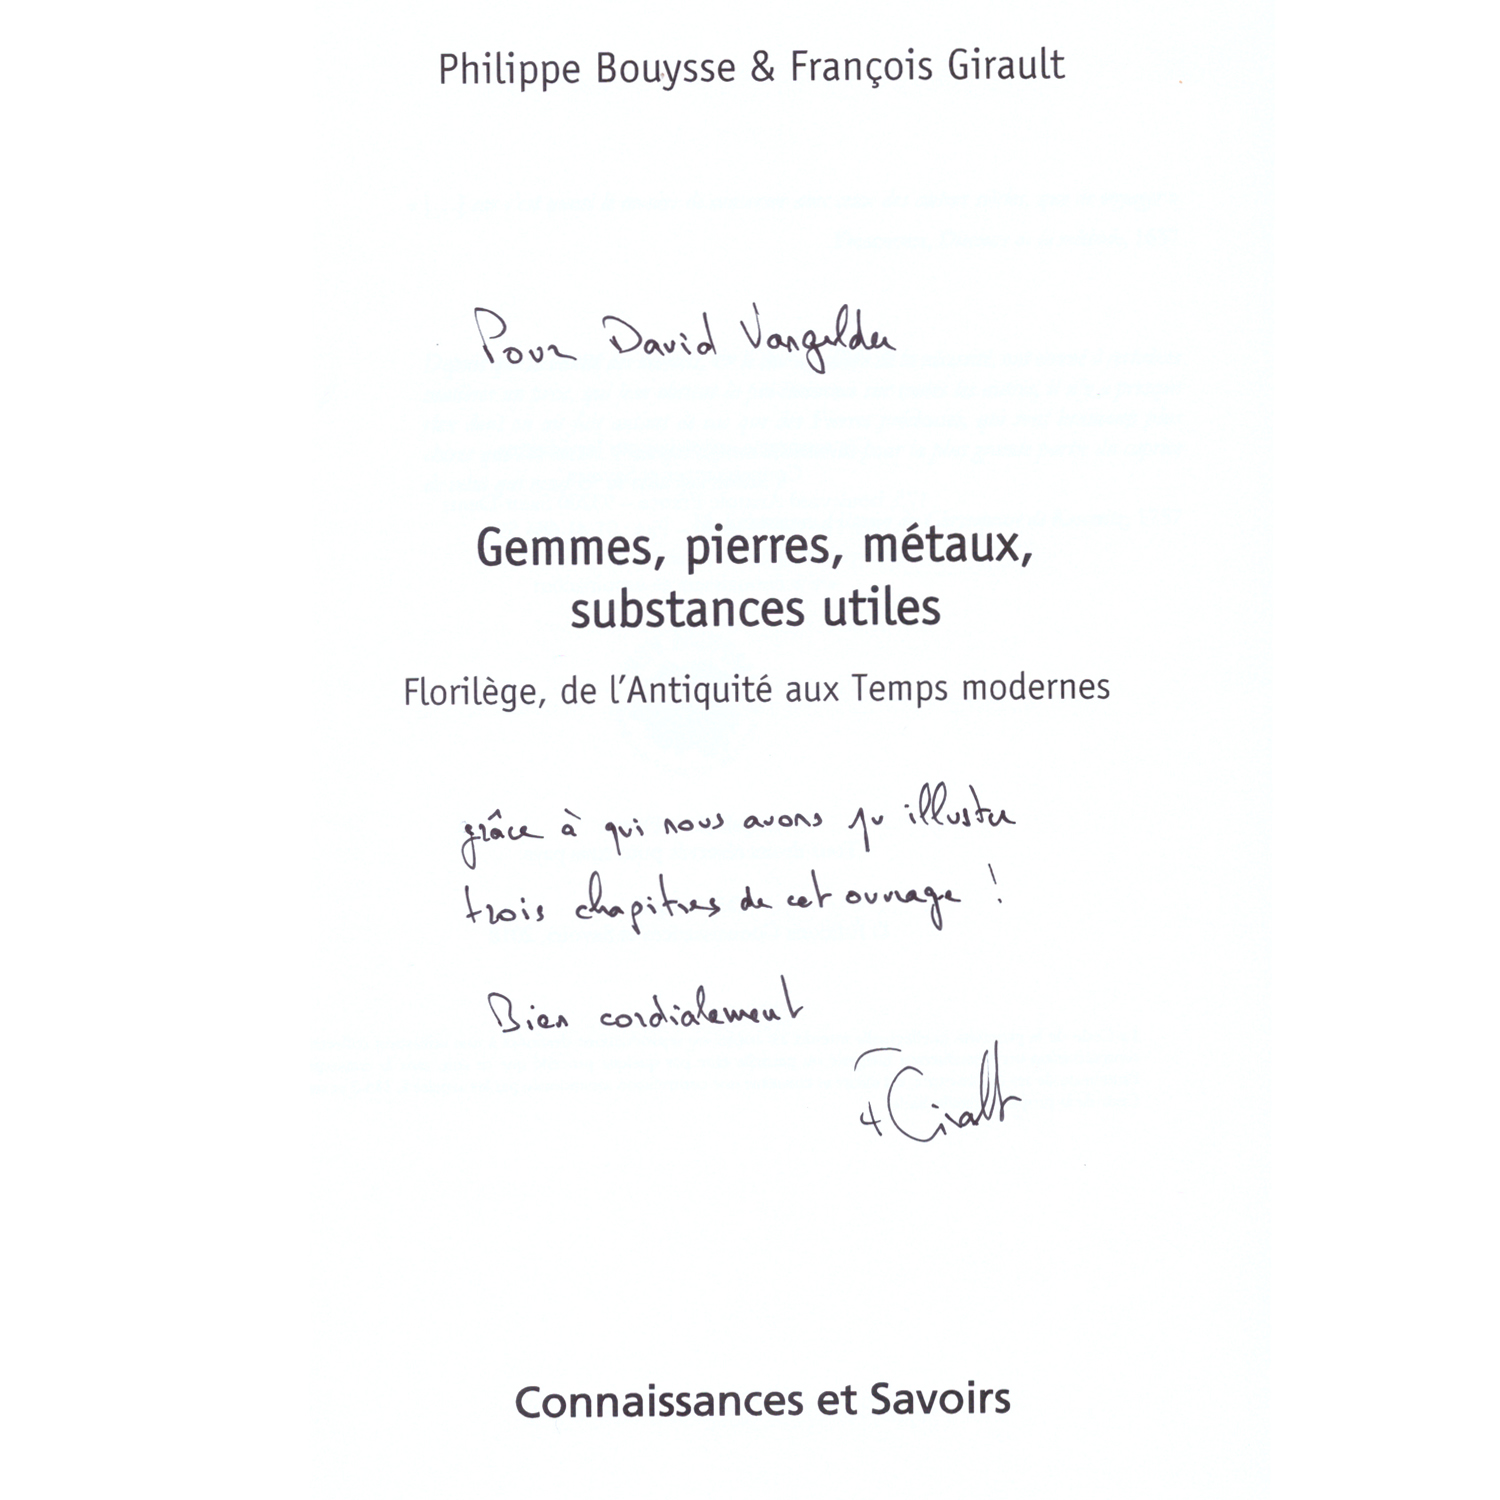 Philippe Bouysse & François Girault
Pour David Vangelder
Gemmes, pierres, métaux,
substances utiles
Florilège, de l'Antiquité aux Temps modernes
grâce à qui nous avons pu illustrer
trois chapitres de cet ouvrage !
Bien cordialement
F Girault
Connaissances et Savoirs